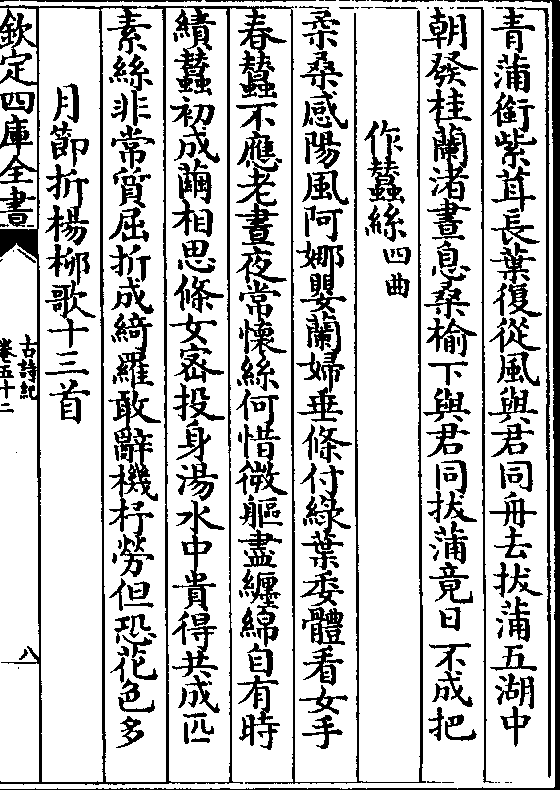 青蒲銜紫茸長葉復從風與君同舟去拔蒲五湖中
朝發桂蘭渚晝息桑榆下與君同拔蒲竟日不成把
作蠶絲四曲
柔桑感陽風阿娜嬰蘭婦垂條付綠葉委體看女手
春蠶不應老晝夜常懷絲何惜微軀盡纏綿自有時
績蠶初成繭相思條女密投身湯水中貴得共成匹
素絲非常質屈折成綺羅敢辭機杼勞但恐花色多
月節折楊柳歌十三首
欽定四庫全書
古詩紀
卷五十二
八